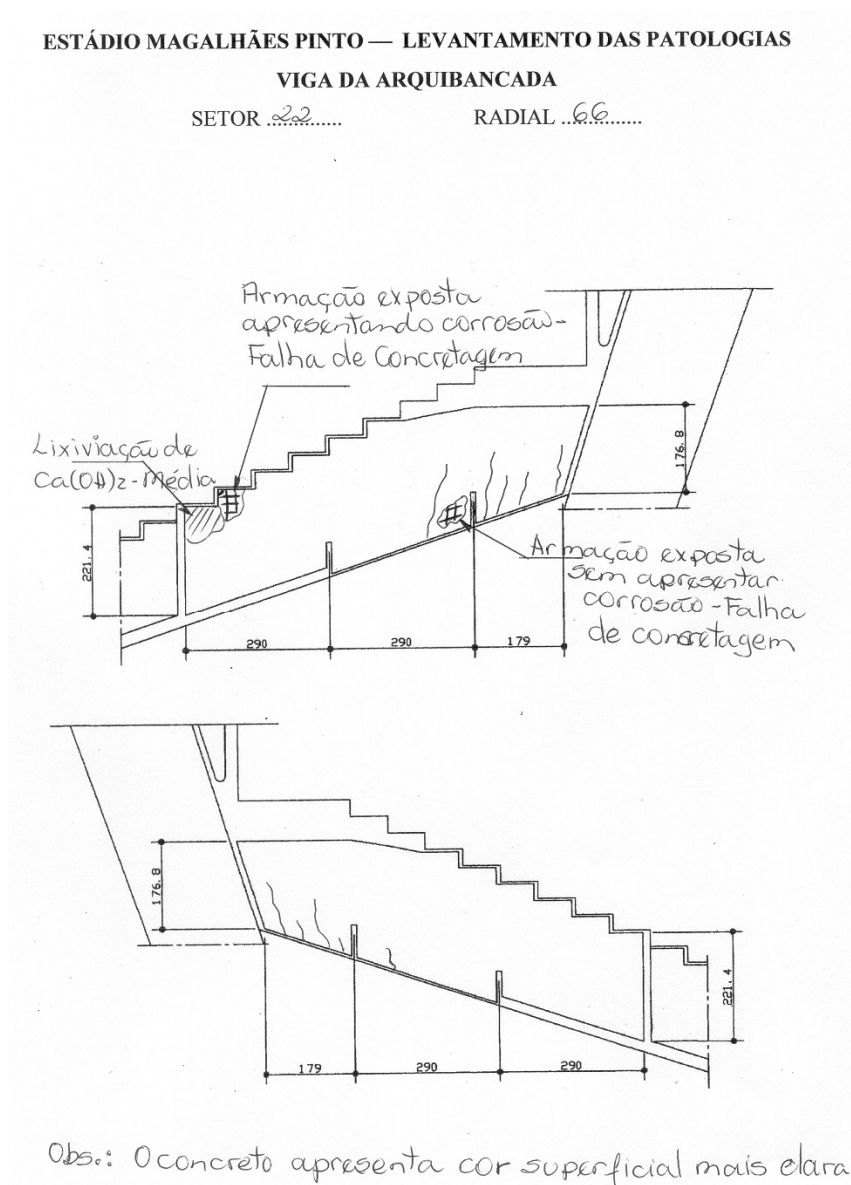 ESTÁDIO MAGALHÃES PINTO — LEVANTAMENTO DAS PATOLOGIAS
VIGA DA ARQUIBANCADA
SETOR ..22.. RADIAL ..66..
Armação exposta
apresentando corrosão-
Falha de Concretagem
Lixiviação de
Ca(OH)2-Média
176.8
221.4
Armação exposta
sem apresentar
corrosão-Falha
de concretagem
290 290 179
176.8
221.4
179 290 290
Obs.: O concreto apresenta cor superficial mais clara